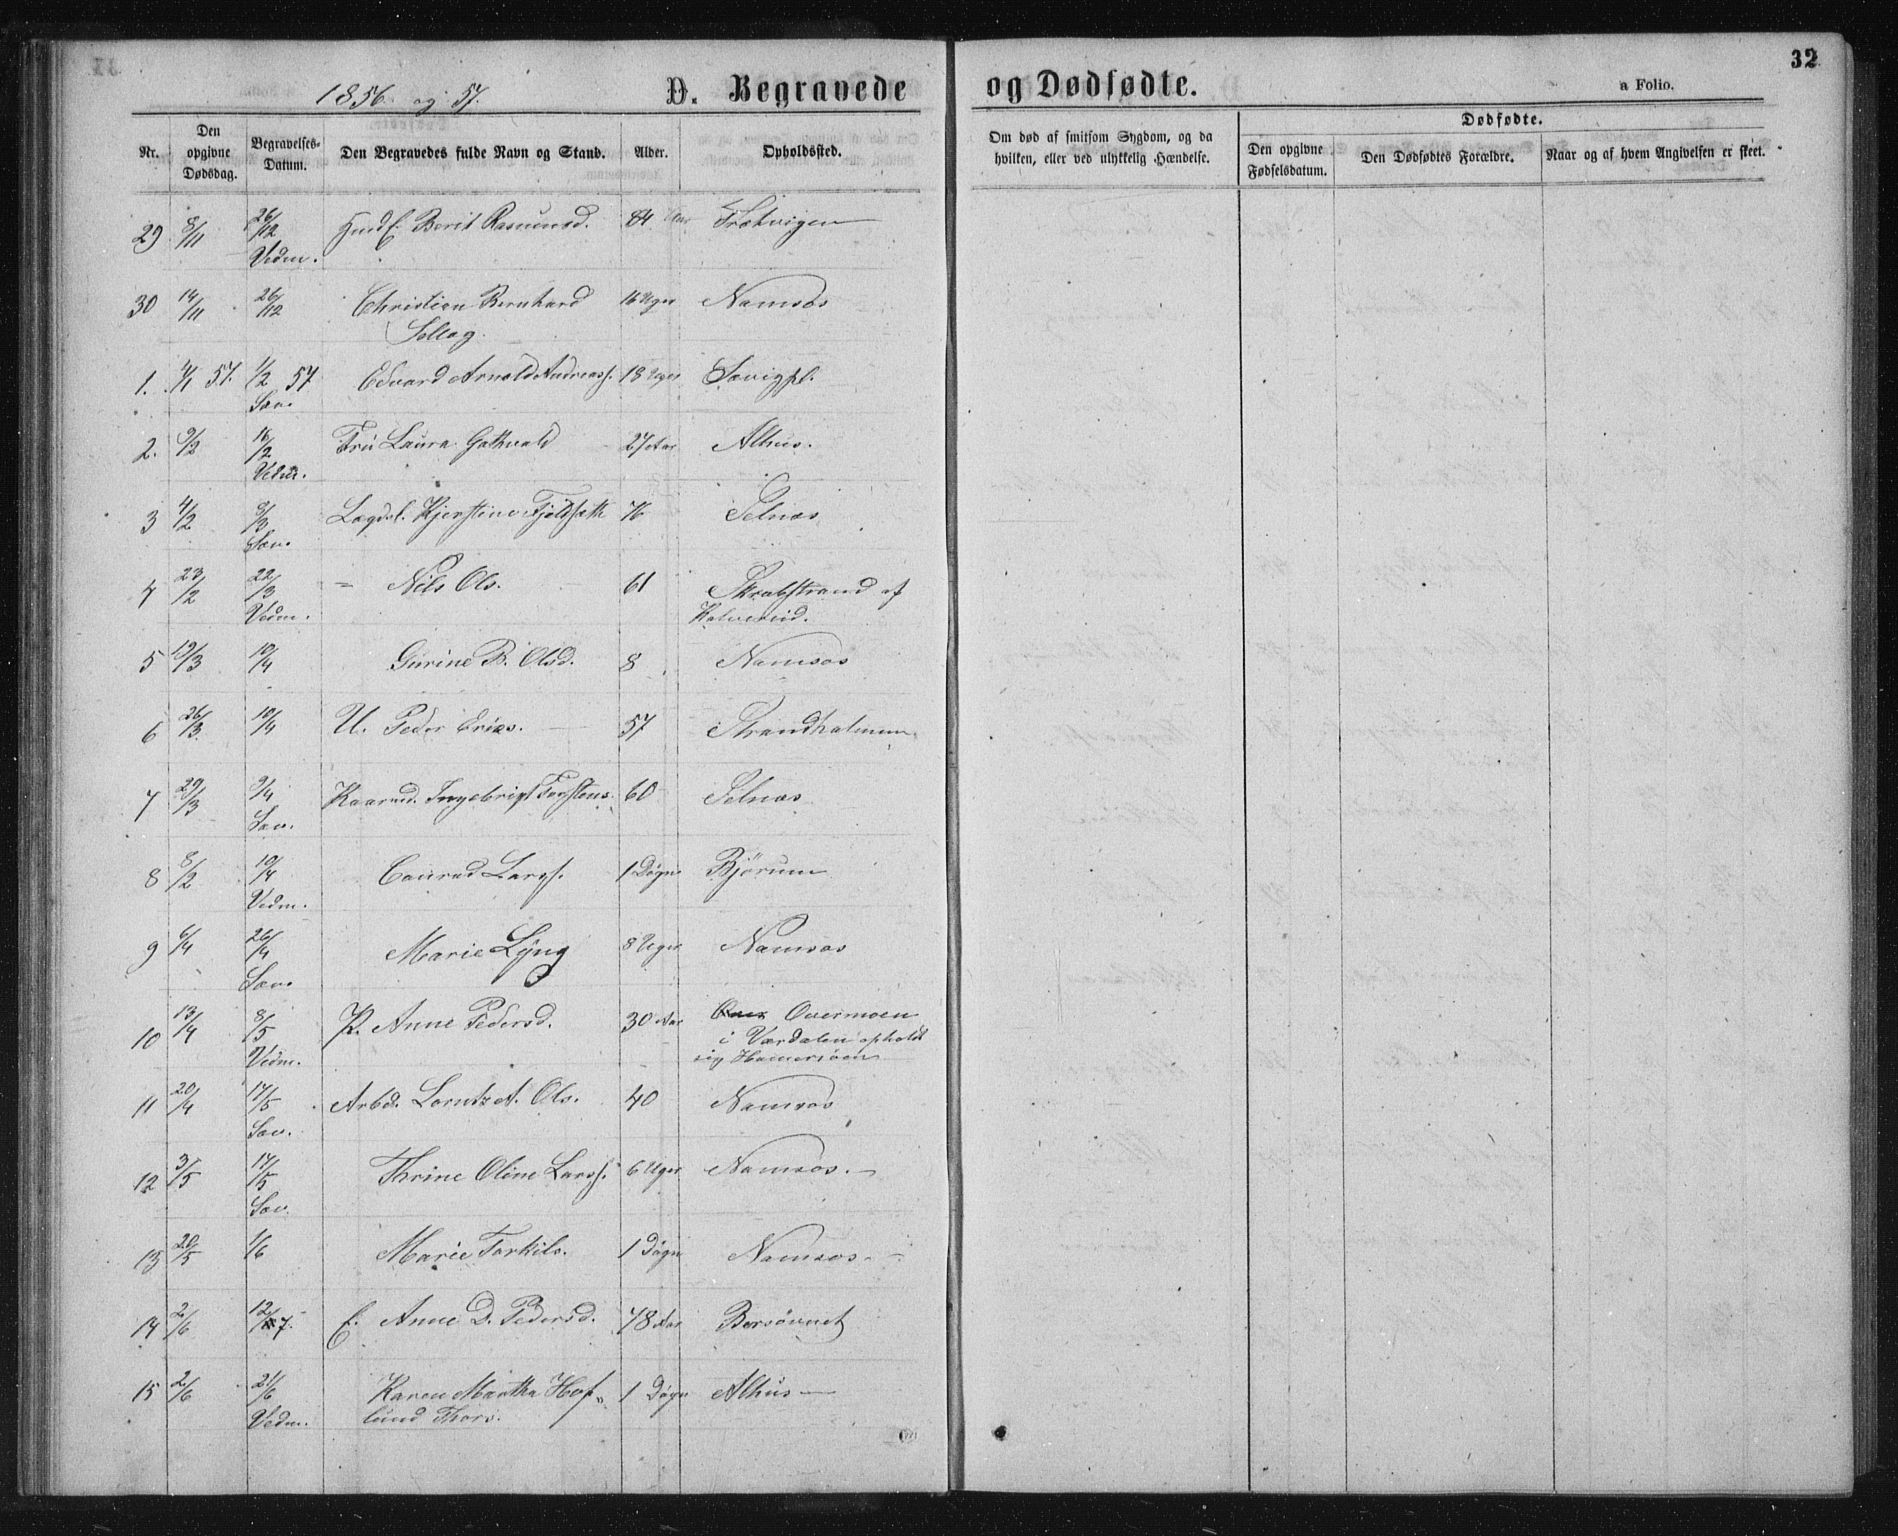 32
1856 og 57.
D. Begravede og Dødfødte.
a Folio.
Nr.
Den opgivne Dødsdag.
Begravelses-Datum.
Den Begravedes fulde Navn og Stand.
Alder.
Opholdssted.
Om død af smitsom Sygdom, og da hvilken, eller ved ulykkelig Hændelse.
Dødfødte.
Den opgivne Fødselsdatum.
Den Dødfødtes Forældre.
Naar og af hvem Angivelsen er skeet.
29 8/11 26/12 Berit Rasmusd. 84 Aar
Vedm.
30 14/11 26/12 Christian Bernhard 16 Uger Namsos
1. 57. 1/2 57 Edvard Arnold Andreass. 18 Uger
Sæv.
2. 9/2 16/2 Fru Laura Gotkvald 27 Aar Alhus.
Vedm.
3 4/2 8/3 Lægdsl. Kjerstine Fjeldseth 76 Selnæs
Sæv.
4 23/2 22/3 – Nils Ols. 61 af
Vedm.
5 19/3 10/4 Gurine B. Olsd. 8 Namsos
6 26/3 10/4 U. Peder Erics. 57 Strandholmen
7 29/3 9/4 Kaarmd. Ingebrigt Torstens. 60 Selnæs
Sæv.
8 8/2 10/4 Conrad Larss. 1 Døgn Bjørum
Vedm.
9 6/4 26/4 Marie Lyng 8 Uger Namsos
Sæv.
10 13/4 8/5 P. Anne Pedersd. 30 Aar Overmoen
Vedm. i Værdalen opholdt
sig
11 20/4 17/5 Arbd. Lorntz A. Ols. 40 Namsos
Sæv.
12 3/5 17/5 Thrine Oline Larss. 6 Uger Namsos.
Sæv.
13 20/5 1/6 Marie Torkils. 1 Døgn Namsos.
14 2/6 12/7. E. Anne D. Pedersd. 78 Aar
15 2/6 21/6 Karen Martha Hof- 1 Døgn Alhus
Vedm. lund Thors.